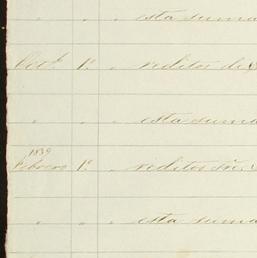 " " " esta suma
Oct.e 1.o reditos de
" " " esta suma
1839
Febrero 1.o reditos
" " " esta suma